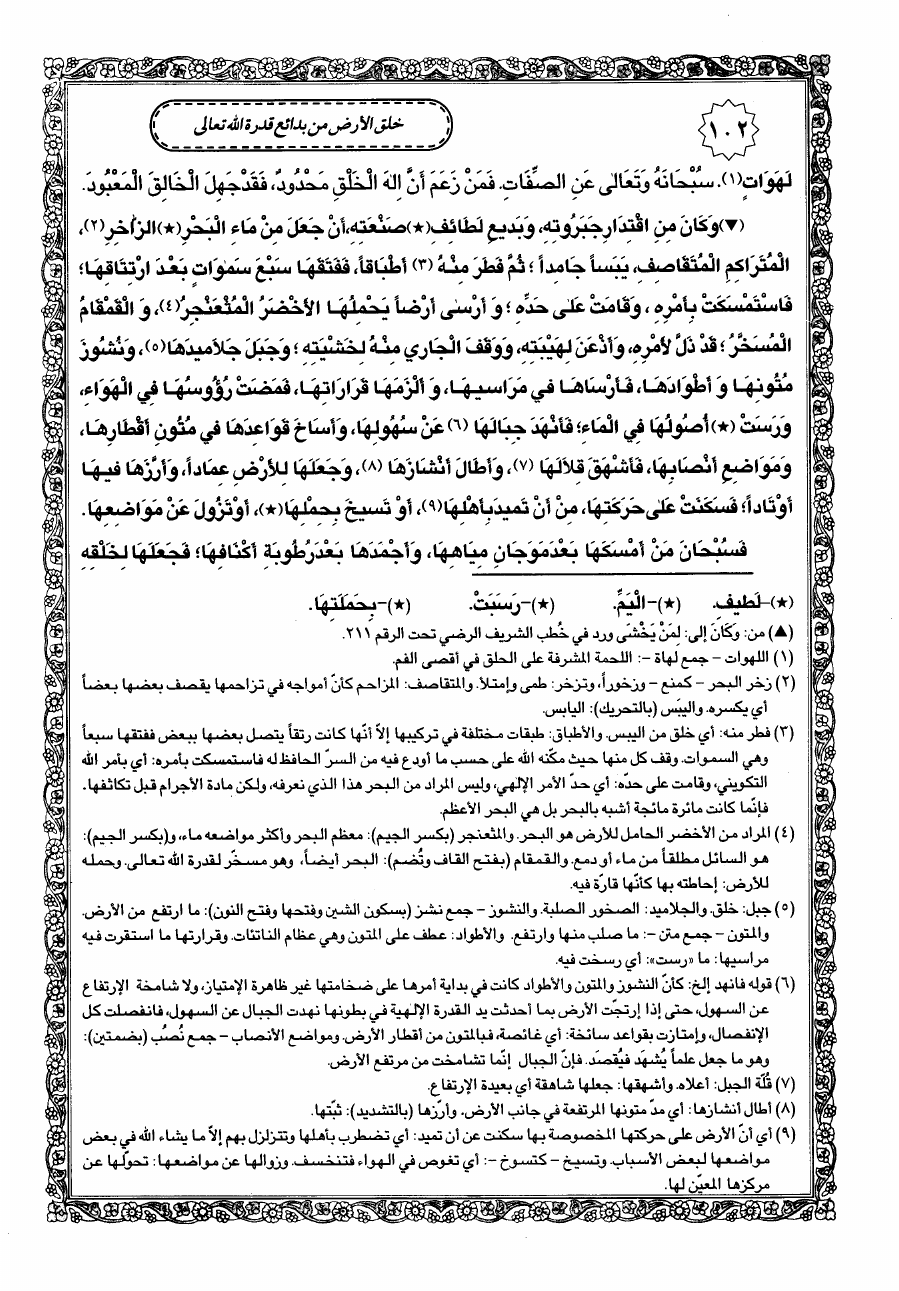 ١٠٢
خلق الأرض من بدائع قدرة الله تعالى
لَهَوَاتٍ(١). سُبْحَانَهُ وَتَعَالى عَنِ الصِّفَاتِ. فَمَنْ زَعَمَ أَنَّ إِلهَ الْخَلْقِ مَحْدُودٌ، فَقَدْ جَهِلَ الْخَالِقَ الْمَعْبُودَ.
(▼)وَكَانَ مِنِ اقْتِدَارِ جَبَرُوتِهِ، وَبَدِيعِ لَطَائِفِ(★)صَنْعَتِهِ،أَنْ جَعَلَ مِنْ مَاءِ الْبَحْرِ(★)الزَّاخِرِ(٢)،
الْمُتَرَاكِمِ الْمُتَقَاصِفِ، يَبَساً جَامِداً ؛ ثُمَّ فَطَرَ مِنْهُ (٣) أَطْبَاقاً، فَفَتَقَهَا سَبْعَ سَموَاتٍ بَعْدَ ارْتِتَاقِهَا؛
فَاسْتَمْسَكَتْ بِأَمْرِهِ ، وَقَامَتْ عَلى حَدِّهِ ؛ وَ أَرْسى أَرْضاً يَحْمِلُهَا الأَخْضَرُ الْمُثْعَنْجِرُ(٤)، وَ الْقَمْقَامُ
الْمُسَخَّرُ ؛ قَدْ ذَلَّ لأَمْرِهِ، وَأَذْعَنَ لِهَيْبَتِهِ، وَوَقَفَ الْجَارِي مِنْهُ لِخَشْيَتِهِ ؛ وَجَبَلَ جَلاَمِيدَهَا(٥)، وَنُشُوزَ
مُتُونِهَا وَ أَطْوَادَهَا، فَأَرْسَاهَا فِي مَرَاسِيهَا، وَ أَلْزَمَهَا قَرَارَاتِهَا، فَمَضَتْ رُؤُوسُهَا فِي الْهَوَاءِ،
وَرَسَتْ (★) أُصُولُهَا فِي الْمَاءِ؛ فَأَنْهَدَ جِبَالَهَا (٦) عَنْ سُهُولِهَا، وَأَسَاخَ قَوَاعِدَهَا فِي مُتُونِ أَقْطَارِهَا،
وَمَوَاضِعِ أَنْصَابِهَا، فَأَشْهَقَ قِلاَلَهَا (٧)، وَأَطَالَ أَنْشَازَهَا (٨)، وَجَعَلَهَا لِلأَرْضِ عِمَاداً، وَأَرَّزَهَا فِيهَا
أَوْتَاداً؛ فَسَكَنَتْ عَلى حَرَكَتِهَا، مِنْ أَنْ تَمِيدَ بِأَهْلِهَا(٩)، أَوْ تَسِيخَ بِحِمْلِهَا(★)، أَوْ تَزُولَ عَنْ مَوَاضِعِهَا.
فَسُبْحَانَ مَنْ أَمْسَكَهَا بَعْدَ مَوَجَانِ مِيَاهِهَا، وَأَجْمَدَهَا بَعْدَ رُطُوبَةِ أَكْنَافِهَا؛ فَجَعَلَهَا لِخَلْقِهِ
(★)-لَطِيفِ. (★)-الْيَمِّ. (★)-رَسَبَتْ. (★)-بِحَمَلَتِهَا.
(▲) من: وَكَانَ إلى: لِمَنْ يَخْشَى ورد في خُطب الشريف الرضي تحت الرقم ٢١١.
(١) اللهوات - جمع لهاة -: اللحمة المشرفة على الحلق في أقصى الفم.
(٢) زخر البحر - كمنع - وزخوراً، وتزخر: طمى وإمتلأ. والمتقاصف: المزاحم كأنّ أمواجه في تزاحمها يقصف بعضها بعضاً
أي يكسره. واليبَس (بالتحريك): اليابس.
(٣) فطر منه: أي خلق من اليبس. والأطباق: طبقات مختلفة في تركيبها إلاّ أنّها كانت رتقاً يتصل بعضها ببعض ففتقها سبعاً
وهي السموات. وقف كل منها حيث مكّنه الله على حسب ما أودع فيه من السرّ الحافظ له فاستمسكت بأمره: أي بأمر الله
التكويني، وقامت على حدّه: أي حدّ الأمر الإلهي، وليس المراد من البحر هذا الذي نعرفه، ولكن مادة الأجرام قبل تكاثفها.
فإنّما كانت مائرة مائجة أشبه بالبحر بل هي البحر الأعظم.
(٤) المراد من الأخضر الحامل للأرض هو البحر. والمثعنجر (بكسر الجيم): معظم البحر وأكثر مواضعه ماء، و(بكسر الجيم):
هو السائل مطلقاً من ماء أو دمع. والقمقام (بفتح القاف وتُضم): البحر أيضاً، وهو مسخّر لقدرة الله تعالى. وحمله
للأرض: إحاطته بها كأنّها قارّة فيه.
(٥) جبل: خلق. والجلاميد: الصخور الصلبة. والنشوز - جمع نشز (بسكون الشين وفتحها وفتح النون): ما ارتفع من الأرض.
والمتون - جمع متن -: ما صلب منها وارتفع. والأطواد: عطف على المتون وهي عظام الناتئات. وقرارتها ما استقرت فيه
مراسيها: ما «رست»: أي رسخت فيه.
(٦) قوله فانهد إلخ: كأنّ النشوز والمتون والأطواد كانت في بداية أمرها على ضخامتها غير ظاهرة الإمتياز، ولا شامخة الإرتفاع
عن السهول، حتى إذا إرتجّت الأرض بما أحدثت يد القدرة الإلهية في بطونها نهدت الجبال عن السهول، فانفصلت كل
الإنفصال، وإمتازت بقواعد سائخة: أي غائصة، فبالمتون من أقطار الأرض. ومواضع الأنصاب - جمع نُصبُ (بضمتين):
وهو ما جعل علماً يُشهَد فيُقصَد. فإنّ الجبال إنّما تشامخت من مرتفع الأرض.
(٧) قُلّة الجبل: أعلاه. وأشهقها: جعلها شاهقة أي بعيدة الإرتفاع.
(٨) أطال أنشازها: أي مدّ متونها المرتفعة في جانب الأرض، وأرّزها (بالتشديد): ثبّتها.
(٩) أي أنّ الأرض على حركتها المخصوصة بها سكنت عن أن تميد: أي تضطرب بأهلها وتتزلزل بهم إلاّ ما يشاء الله في بعض
مواضعها لبعض الأسباب. وتسيخ - كتسوخ -: أي تغوص في الهواء فتنخسف. وزوالها عن مواضعها: تحوّلها عن
مركزها المعيّن لها.